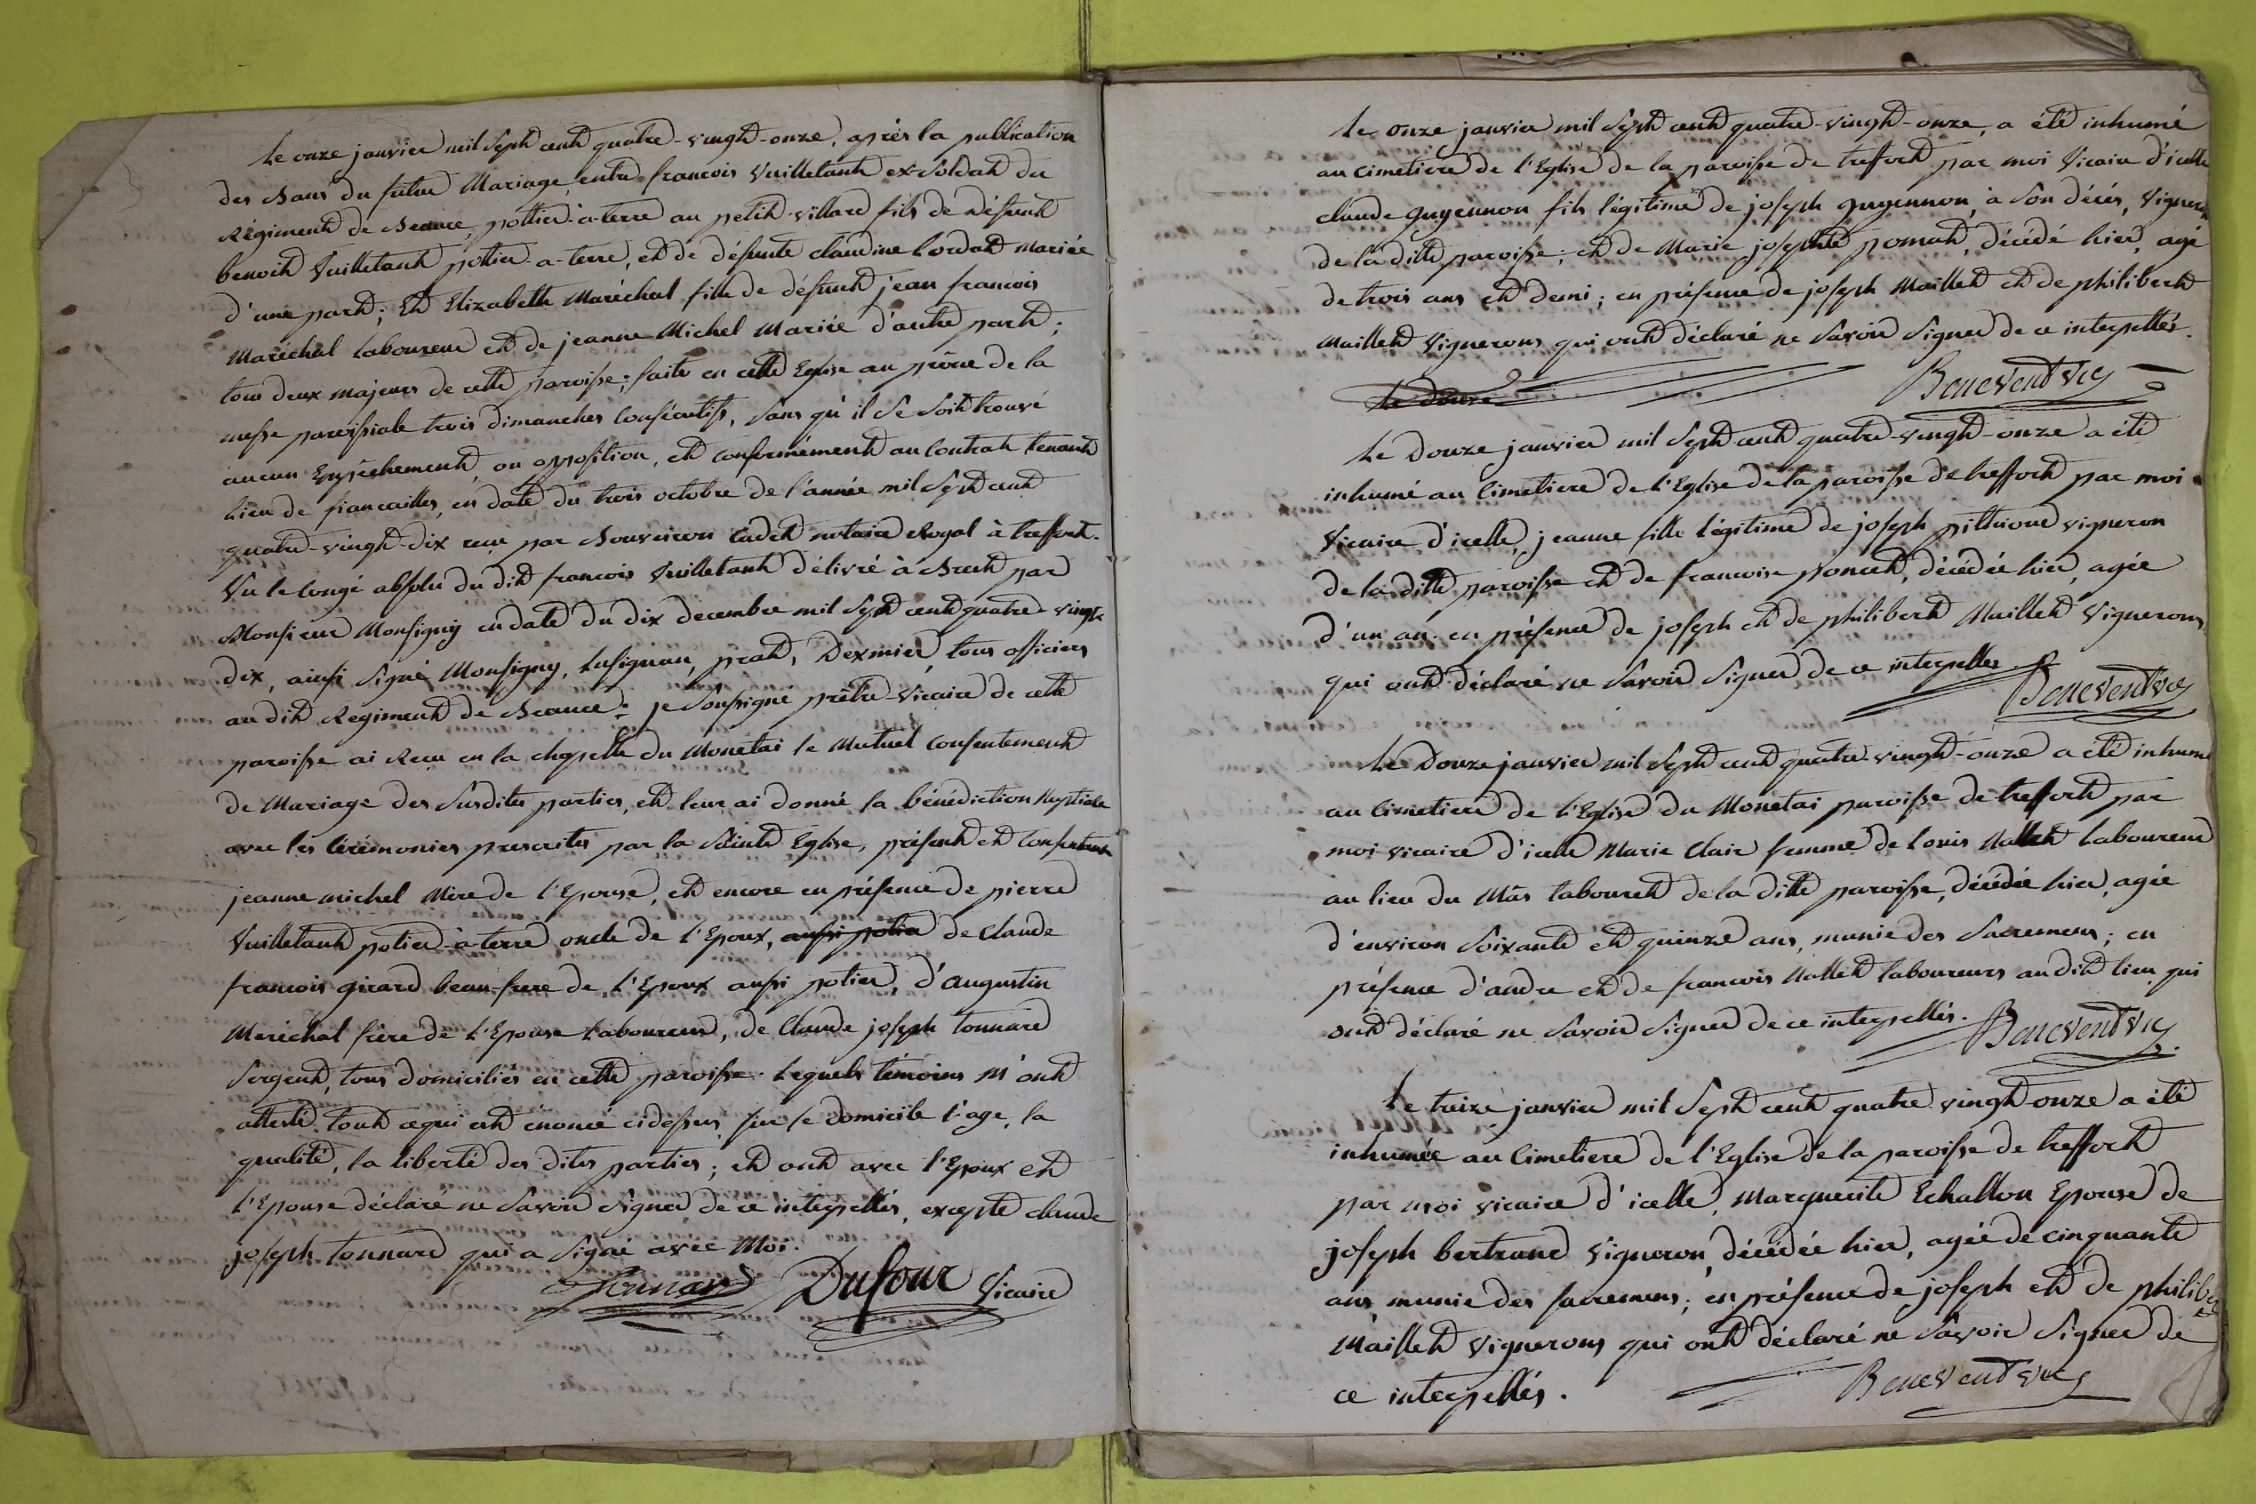 Le onze janvier mil Sept cent quatre-vingt-onze, après la publication
des Bans du futur Mariage, entre francois Vuilletant ex-Soldat du
Régiment de Beauce, pottier-à-terre au petit-villard fils de défunt
benoit Vuilletant pottier-a-terre, et de défunte claudine Cordat mariée
d'une part; Et Elizabette Maréchal fille de défunt jean francois
Maréchal Laboureur et de jeanne Michel Mariée d'autre part;
tous deux majeurs de cette paroisse; faite en cette Eglise au prône de la
messe paroissiale trois dimanches consécutifs, sans qu'il se soit trouvé
aucun Empêchement ou opposition, et conformément au Contrat tenant
Lieu de fiancailles, en date du trois octobre de l'année mil Sept cent
quatre-vingt-dix reçu par Bouveiron Cadet notaire Royal à treffort.
Vu le congé absolu du dit francois Vuilletant délivré à Brest par
Monsieur Monsigny en date du dix decembre mil Sept cent quatre vingt
dix, ainsi Signé Monsigny, Lusignan, prat, Dexmier, tous officiers
au dit Regiment de Beauce: je soussigné prêtre-Vicaire de cette
paroisse ai Recu en la chapelle du Monetai le Mutuel Consentement
de Mariage des Susdites parties, et leur ai donné la bénédiction Nuptiale
avec les Cérémonies prescrites par la Sainte Eglise, présent et Consentant
jeanne michel Mere de l'Epouse, et encore en présence de pierre
Vuilletant potier-à-terre oncle de l'Epoux, aussi potier de Claude
francois girard beau-frere de l'Epoux aussi potier, d'augustin
Maréchal frère de l'Epouse Laboureur, de Claude joseph tonnard
Sergent, tous domiciliés en cette paroisse. Lequels témoins m'ont
attesté tout cequi est énoncé cidessus sur le domicile l'age, la
qualité, la liberté des dites parties; et ont avec l'Epoux et
l'Epouse déclaré ne Savoir Signer de ce interpellés, excepté claude
joseph tonnard qui a Signé avec Moi.
Tonnard Dufour Vicaire
Le onze janvier mil Sept cent quatre-vingt-onze, a été inhumé
au cimetiere de l'Eglise de la paroisse de treffort par moi Vicaire d'icelle
claude guyennon fils légitime de joseph guyennon, à Son décés, Vigneron
de la ditte paroisse; et de Marie josephte décédé hier, agé
de trois ans et demi; en présence de joseph Maillet et de philibert
Maillet Vignerons qui ont déclaré ne Savoir Signer de ce interpellés.
Le douze Benevent Vic
Le Douze janvier mil Sept cent quatre-vingt-onze a été
inhumé au Cimetiere de l'Eglise de la paroisse de treffort par moi
Vicaire d'icelle, jeanne fille légitime de joseph vigneron
de la ditte paroisse et de francoise poncet, décédée hier, agée
d'un an. en présence de joseph et de philibert Maillet Vignerons
qui ont déclaré ne Savoir Signer de ce interpellés
Benevent vic
Le Douze janvier mil Sept cent quatre vingt-onze a été inhumé
au Cimetiere de l'Eglise du Monetai paroisse de treffort par
moi vicaire d'icelle Marie Clair femme de Louis Nallet Laboureur
au lieu du Mâs tabouret de la ditte paroisse, décédée hier, agée
d'environ Soixante et quinze ans, munie des Sacremens; en
présence d'andre et de francois Nallet Laboureurs au dit lieu qui
ont déclaré ne Savoir Signer de ce interpellés. Benevent Vic
Le treize janvier mil Sept cent quatre vingt onze a été
inhumée au Cimetiere de l'Eglise de la paroisse de treffort
par moi vicaire d'icelle, Marguerite Echallon Epouse de
joseph bertrand Vigneron, décédée hier, agée de cinquante
ans munie des sacremens; en présence de joseph et de philibert
Maillet Vignerons qui ont déclaré ne Savoir Signer de
ce interpellés. Benevent vic